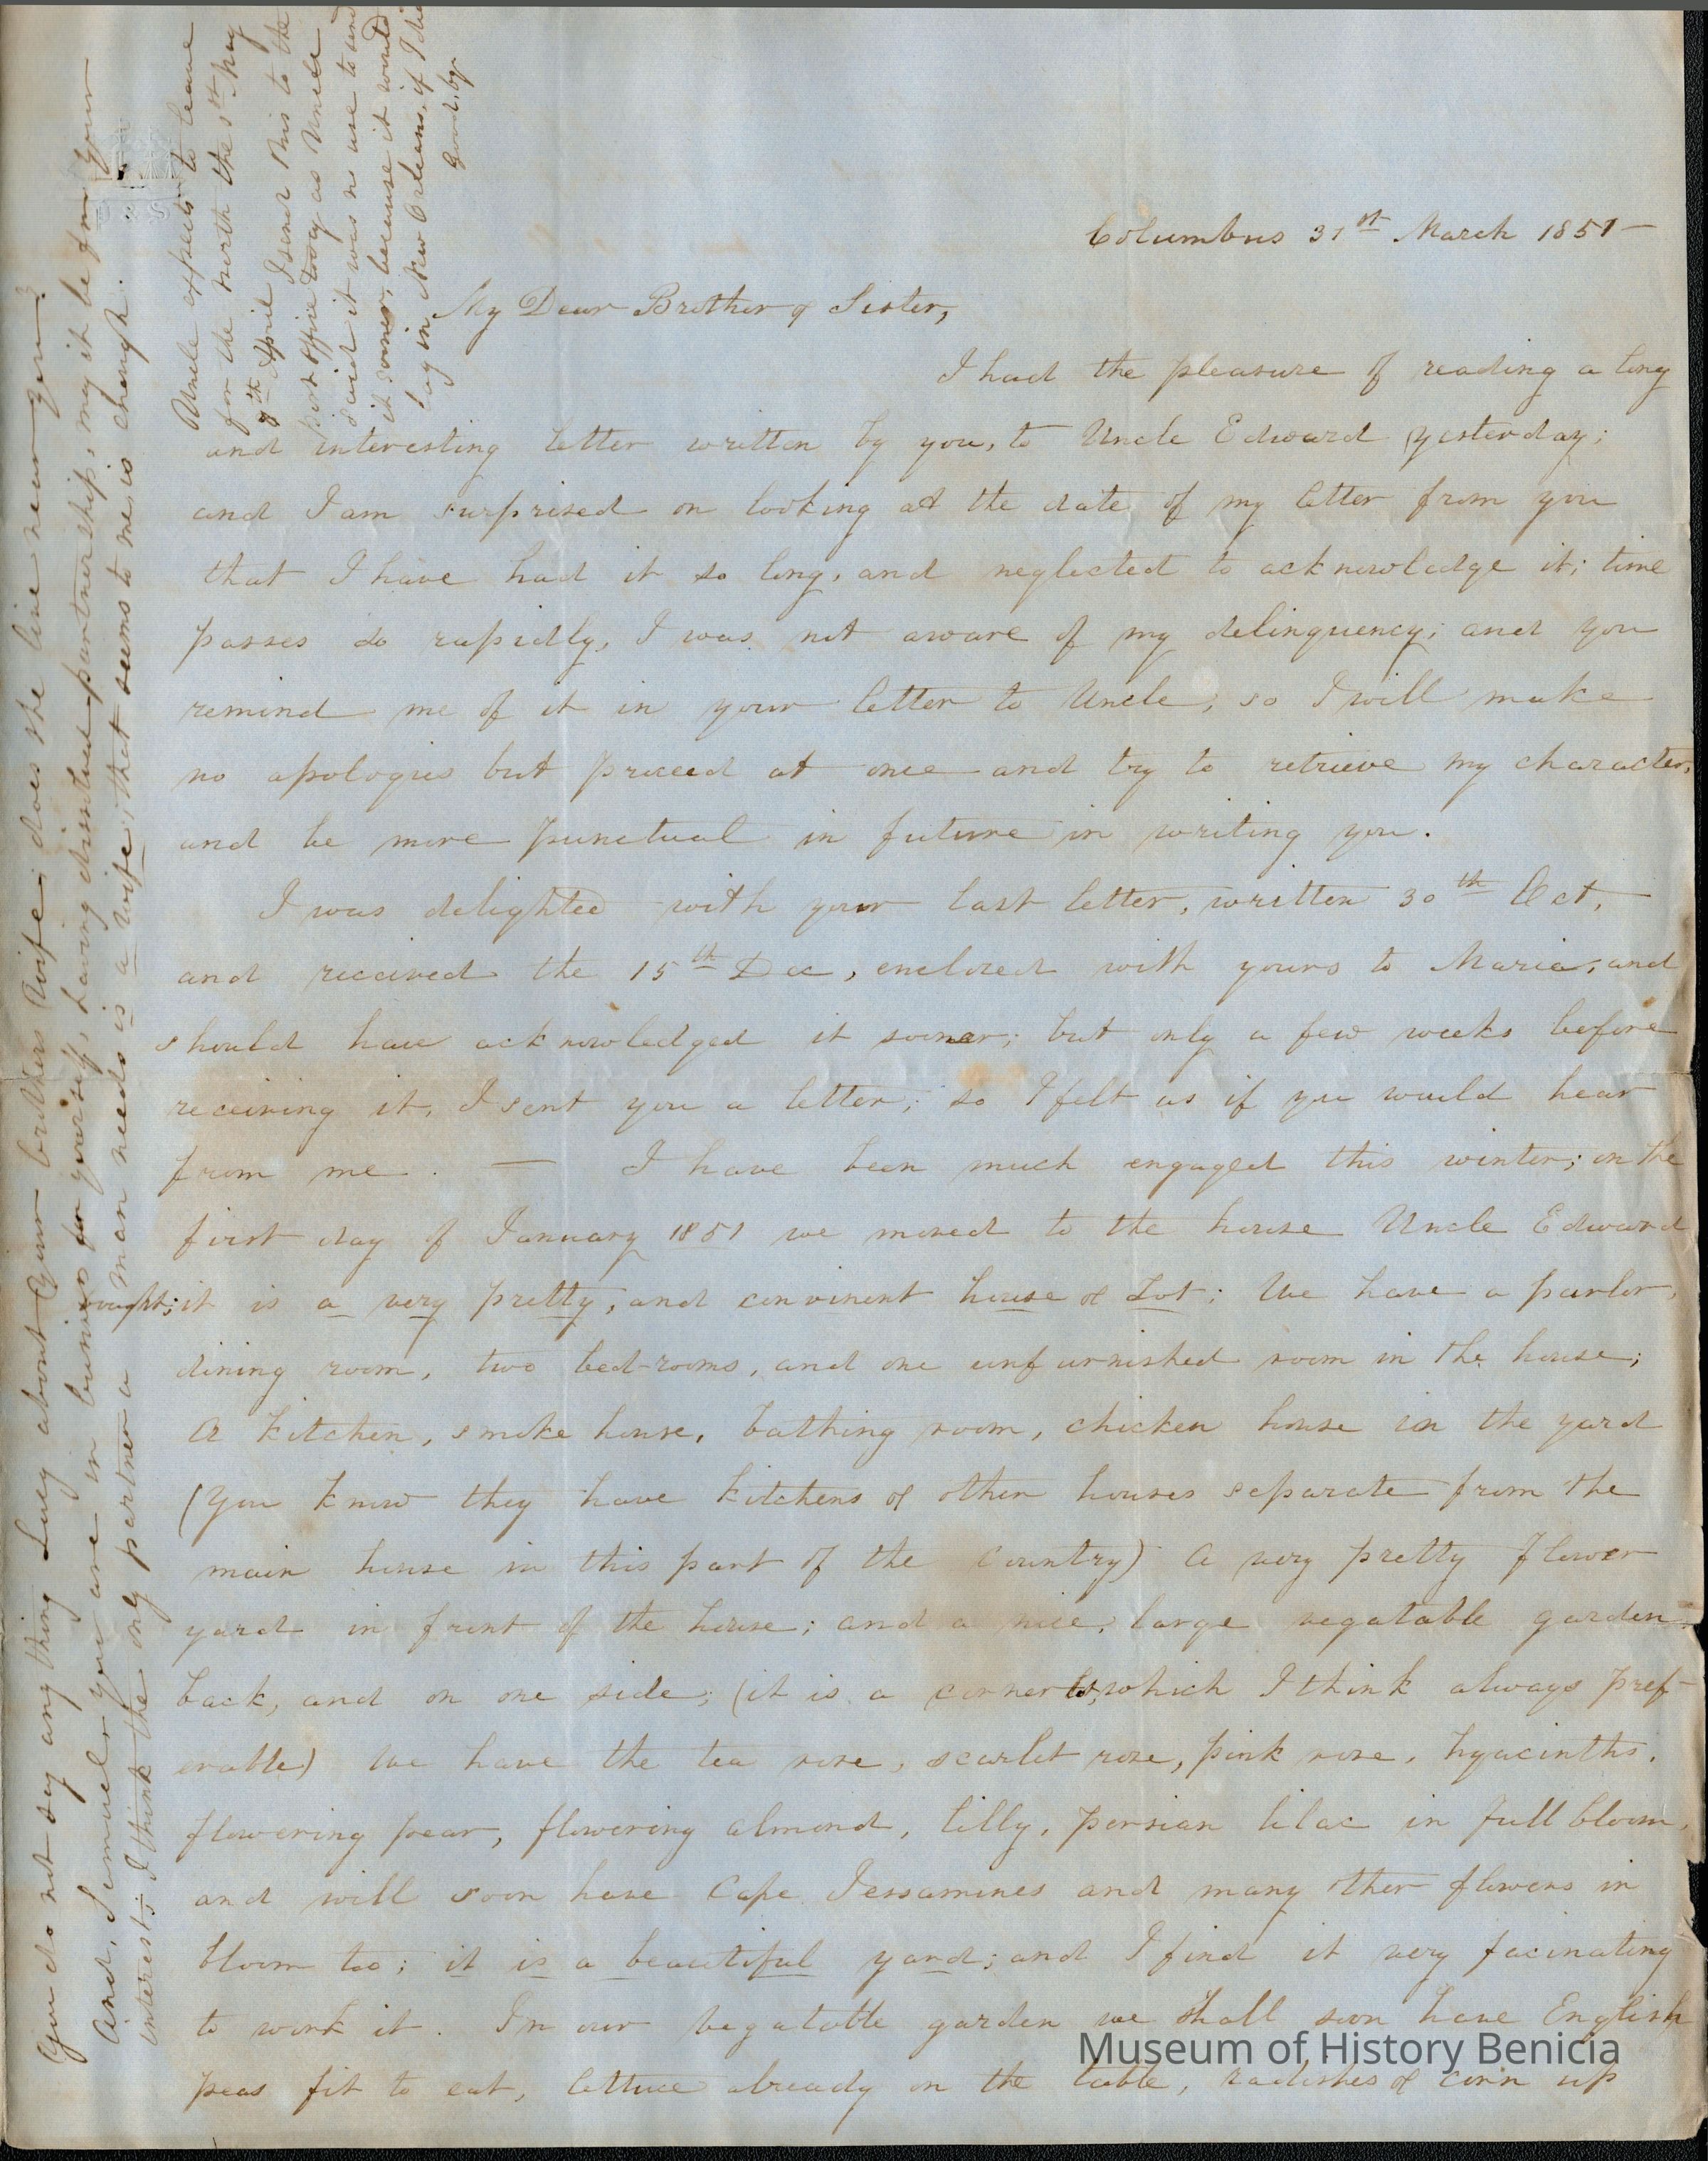 Columbus 31st March 1851 —
My Dear Brother & Sister,
I had the pleasure of reading a long
and interesting letter written by you, to Uncle Edward yesterday;
and I am surprised on looking at the date of my letter from you
that I have had it so long, and neglected to acknowledge it; time
passes so rapidly, I was not aware of my delinquency; and you
remind me of it in your letter to Uncle; so I will make
no apologies but proceed at once and try to retrieve my character,
and be more punctual in future in writing you.
I was delighted with your last letter, written 30th Oct,
and received the 15th Dec, enclosed with yours to Maria, and
should have acknowledged it sooner; but only a few weeks before
receiving it, I sent you a letter; so I felt as if you would hear
from me. — I have been much engaged this winter; on the
first day of January 1851 we moved to the house Uncle Edward
bought; it is a very pretty, and convinent house & Lot; We have a parlor,
dining room, two bed-rooms, and one unfurnished room in the house;
A kitchen, smoke house, bathing room, chicken house in the yard
(you know they have kitchens & other houses separate from the
main house in this part of the country) A very pretty flower
yard in front of the house; and a nice, large vegatable garden,
back, and on one side; (it is a corner lot, which I think always pref-
erable) We have the tea rose, scarlet rose, pink rose, hyacinths,
flowering pear, flowering almond, lilly, persian lilac in full bloom,
and will soon have Cape Jessamines and many other flowers in
bloom too; it is a beautiful yard; and I find it very facinating
to work it. In our vegatable garden we shall soon have English
peas fit to eat, lettuce already on the table, radishes & corn up
You do not say any thing Lucy about your brothers Wife; does she live near you?
And, Samuel you are in business for yourself, having dissolved partnership, may it be for your
interest; I think the only partner a man needs is a wife, that seems to me is enough.
Uncle expects to leave
for the north the 1st May
8th April I send this to the
post office today as Uncle
said it was no use to send
it sooner, because it would
lay in New Orleans, if I did
Good by
Museum of History Benicia